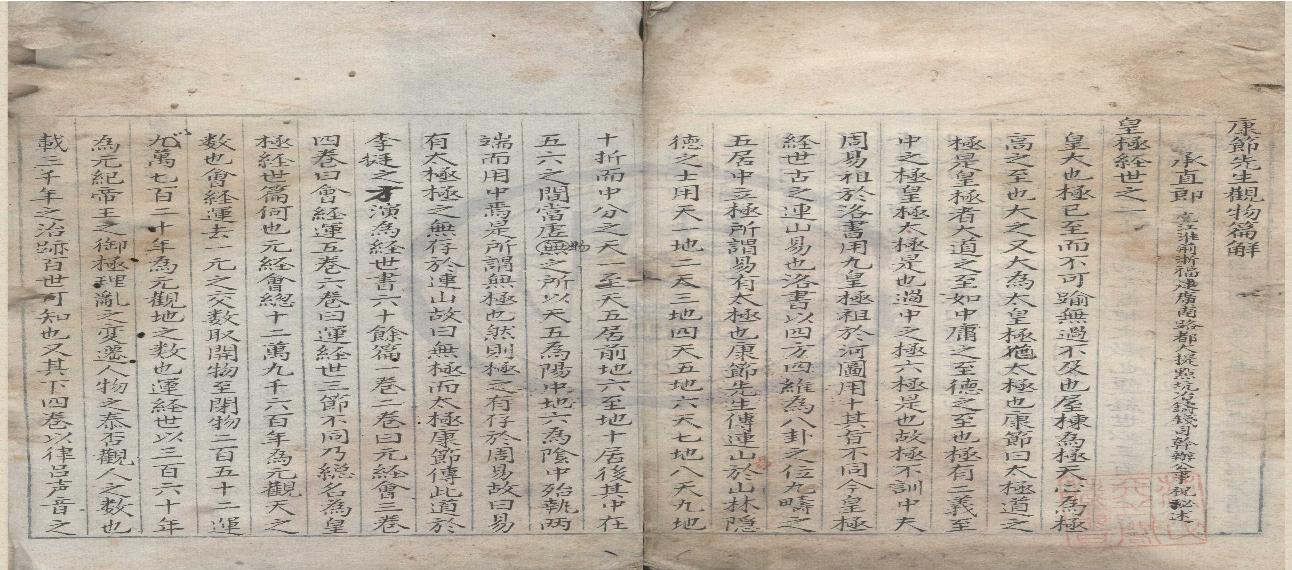 康節先生觀物篇解
承直郎宣江淮荊浙福建廣南路都大提點坑冶鑄錢司幹辦公事祝秘述
皇極經世之一
皇大也極已至而不可踰無過不及也屋棟為極天心為極
高之至也大之又大為太皇極猶太極也康節曰太極道之
極是皇極者大道之至如中庸之至德之至也極有二義至
中之極皇極太極是也過中之極六極是也故極不訓中夫
周易祖於洛書用九皇極祖於河圖用十其旨不同今皇極
經世古之連山易也洛書以四方四維為八卦之位九疇之
五居中立極所謂易有太極也康節先生傳連山於山林隱
德之士用天一地二天三地四天五地六天七地八天九地
十折而中分之天一至天五居前地六至地十居後其中在
五六之間當虛無物之所以天五為陽中地六為陰中殆執兩
端而用中焉是所謂無極也然則極之有存於周易故曰易
有太極極之無存於連山故曰無極而太極康節傳此道於
李挺之才演為經世書六十餘篇一卷二卷曰元經會三卷
四卷曰會經運五卷六卷曰運經世三節不同乃総名為皇
極経世篇何也元経會総十二萬九千六百年為元觀天之
数也會経運去一元之交数取開物至閉物二百五十二運
九萬七百二十年為元觀地之数也運経世以三百六十年
為元紀帝王之御極理亂之变遷人物之泰否觀人之数也
載三千年之治跡百世可知也又其下四卷以律呂声音之